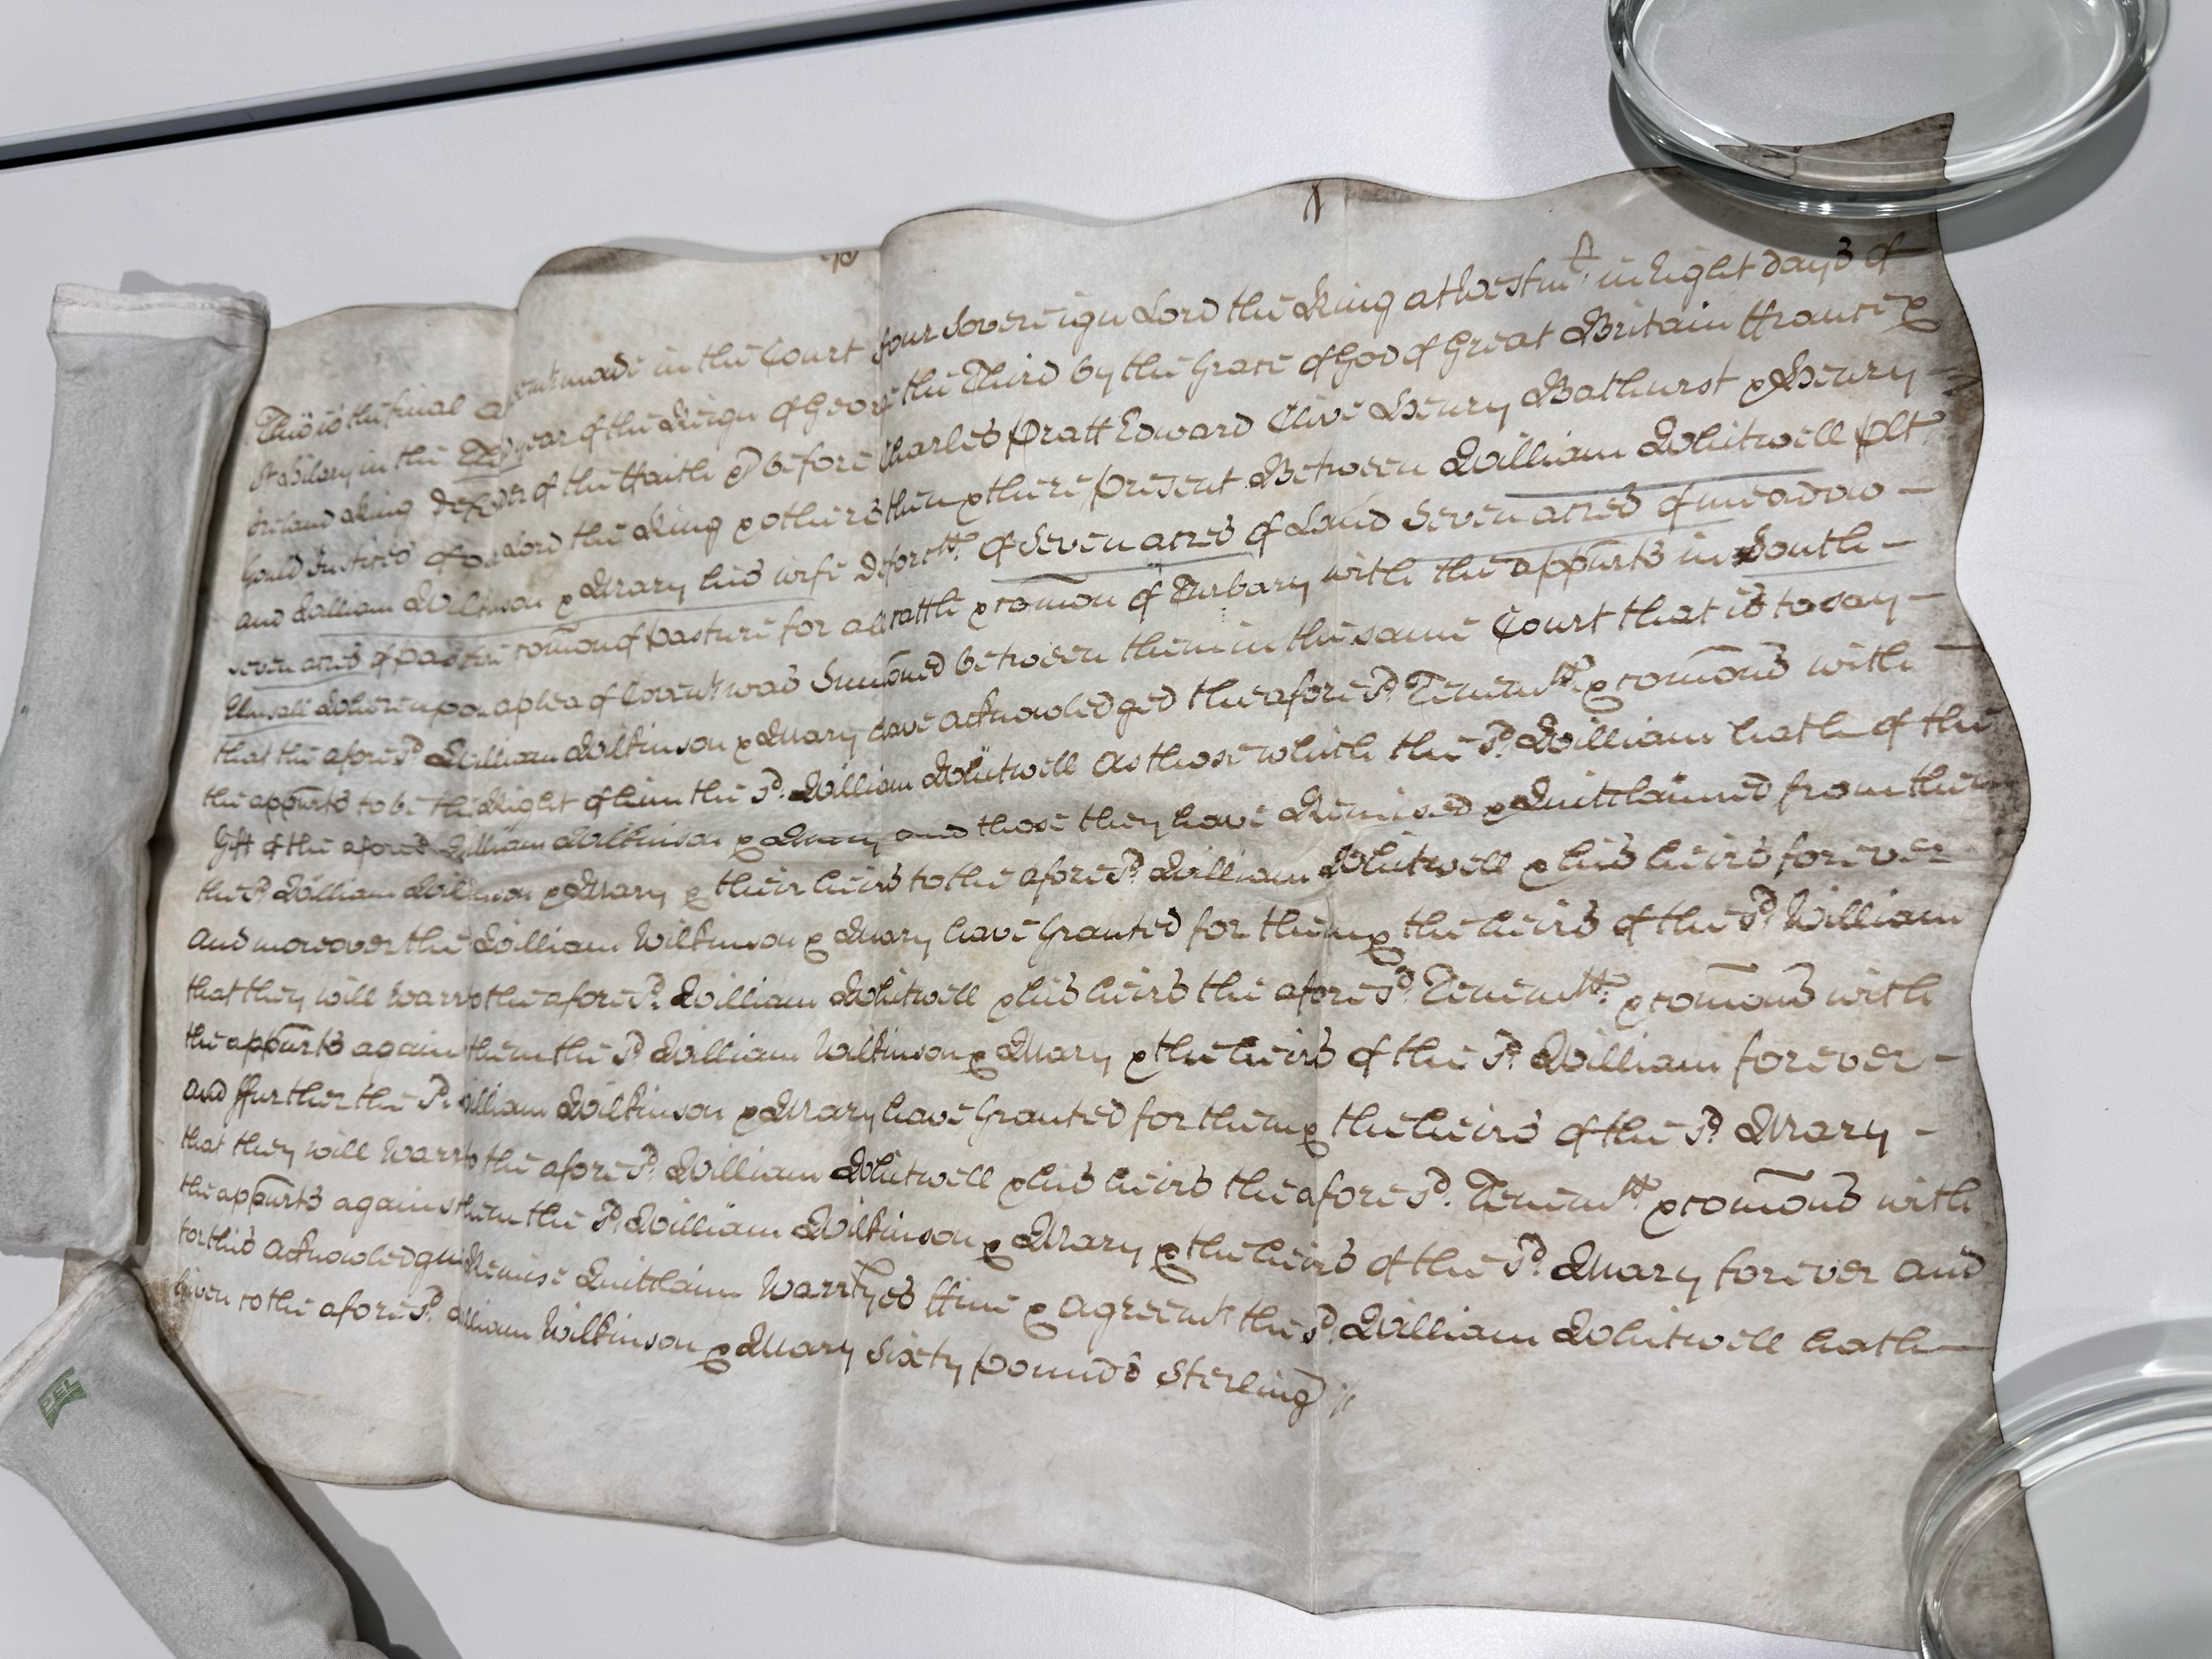 This is the final agreemt made in the Court of our Sovereign Lord the King at Westmr in Eight days of
St Hilary in the year of the Reign of George the Third by the Grace of God of Great Britain ffrance &
Ireland King Defender of the ffaith &c before Charles Pratt Edward Clive Henry Bathurst & Henry
Gould Justices of our Lord the King & others then & there Present Between William Whitwell Plt
and William Wilkinson & Mary his wife Deforcts. of Seven acres of Land Seven acres of meadow
seven acres of pasture comon of pasture for all cattle & comon of Turbary with the appurts in South
Elmsall Whereupon a plea of Covent was Sumoned between them in the same Court that is to say
that the aforesd William Wilkinson & Mary have Acknowledged the aforesd. Tenemts. & comons with
the appurts to be the Right of him the sd. William Whitwell As those which the sd. William hath of the
Gift of the aforesd William Wilkinson & Mary and those they have Remised & Quitclaimed from them
the sd William Wilkinson & Mary & their heirs to the aforesd. William Whitwell & his heirs forever
And moreover the William Wilkinson & Mary have Granted for them & the heirs of the sd. William
that they will Warrt to the aforesd. William Whitwell & his heirs the aforesd. Tenemts. & comons with
the appurts against them the sd. William Wilkinson & Mary & the heirs of the sd. William forever
And ffurther the sd. William Wilkinson & Mary have Granted for them & the heirs of the sd. Mary
that they will Warrt to the aforesd. William Whitwell & his heirs the aforesd. Tenemts. & comons with
the appurts against them the sd. William Wilkinson & Mary & the heirs of the sd. Mary forever And
for this Acknowledgmt Remise Quitclaim Warrtyes ffine & Agreemt the sd. William Whitwell hath
Given to the aforesd. William Wilkinson & Mary Sixty pounds Sterling